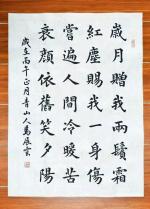 歲月贈我兩鬢霜
紅塵賜我一身傷
嘗遍人間冷暖苦
衰顏依舊笑夕陽
歲在丙午正月青山人